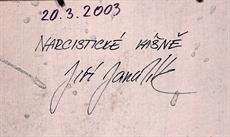 20.3.2003
NARCISTICKÉ VÁŠNĚ
Jiří Janulík